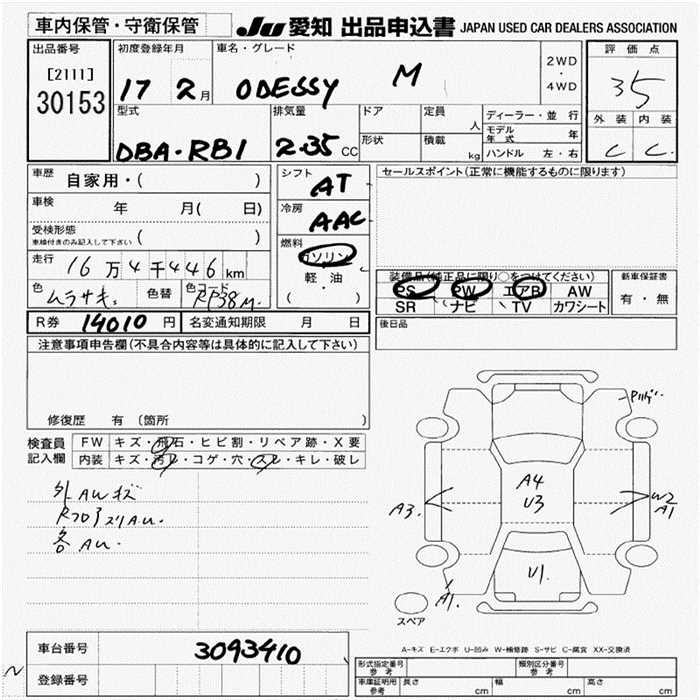 車内保管・守衛保管
JU 愛知 出品申込書 JAPAN USED CAR DEALERS ASSOCIATION
出品番号
[2111]
30153
初度登録年月
17 2月
車名・グレード
ODESSY M
2WD
・
4WD
評価点
35
外装 内装
C C
型式
DBA・RB1
排気量
2.35 CC
ドア
形状
定員
人
積載
kg
ディーラー・並行
モデル年式 年
ハンドル 左・右
車歴
自家用・( )
車検
年 月( 日)
受検形態
車検付きのみ記入して下さい ( )
走行
16万4千446km
色
ムラサキ
色替
色コード
RP38M
シフト
AT
冷房
AAC
燃料
ガソリン
・
軽・油
( )
セールスポイント(正常に機能するものに限ります)
装備品(純正品に限り○をつけてください)
PS PW エアB AW
SR ナビ TV カワシート
新車保証書
有・無
後日品
R券 14010円
名変通知期限 月 日
注意事項申告欄(不具合内容等は具体的に記入して下さい)
修復歴 有 (箇所 )
検査員
記入欄
FW キズ・飛石・ヒビ割・リペア跡・X要
内装 キズ・汚レ・コゲ・穴・スレ・キレ・破レ
外AWキズ
各AU.
A4
U3
A3.
W2
A1
U1.
A1.
スペア
A-キズ E-エクボ U-凹み W-補修跡 S-サビ C-腐食 XX-交換済
車台番号 3093410
登録番号
型式指定番号
参考
類別区分番号
参考
車庫証明用
参考
長さ cm
幅 cm
高さ cm